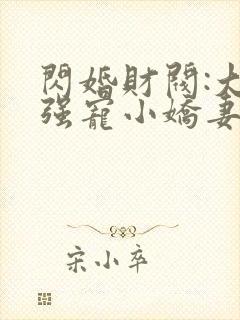 閃婚財閥:大
强寵小嬌妻
宋小卒